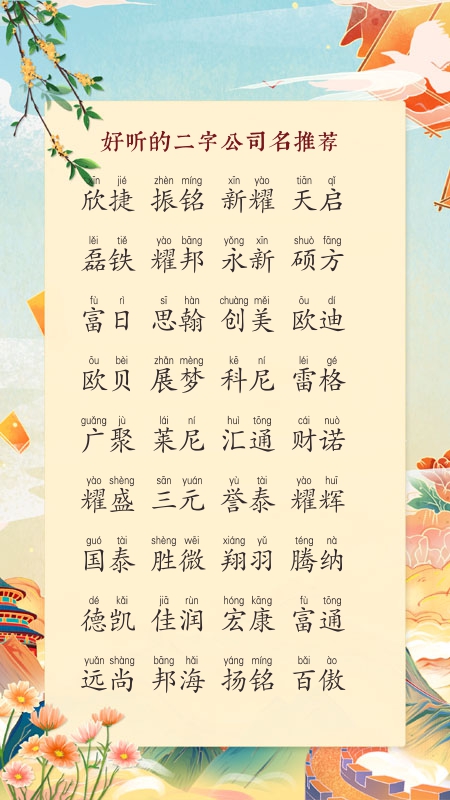 好听的二字公司名推荐
xīn jié zhèn míng xīn yào tiān qǐ
欣捷 振铭 新耀 天启
lěi tiě yào bāng yǒng xīn shuò fāng
磊铁 耀邦 永新 硕方
fù rì sī hàn chuàng měi ōu dí
富日 思翰 创美 欧迪
ōu bèi zhǎn mèng kē ní léi gé
欧贝 展梦 科尼 雷格
guǎng jù lái ní huì tōng cái nuò
广聚 莱尼 汇通 财诺
yào shèng sān yuán yù tài yào huī
耀盛 三元 誉泰 耀辉
guó tài shèng wēi xiáng yǔ téng nà
国泰 胜微 翔羽 腾纳
dé kǎi jiā rùn hóng kāng fù tōng
德凯 佳润 宏康 富通
yuǎn shàng bāng hǎi yáng míng bǎi ào
远尚 邦海 扬铭 百傲